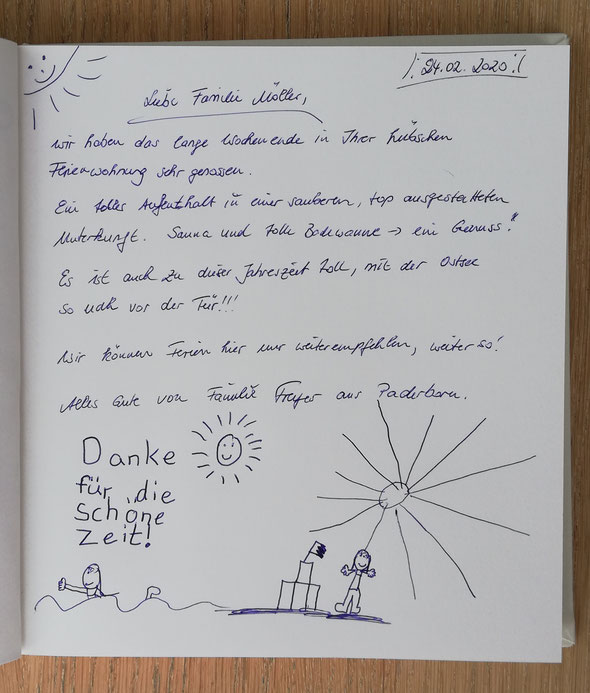 24.02.2020
Liebe Familie Möller,
wir haben das lange Wochenende in Ihrer hübschen
Ferienwohnung sehr genossen.
Ein toller Aufenthalt in einer sauberen, top ausgestatteten
Unterkunft. Sauna und tolle Badewanne → ein Genuss!
Es ist auch zu dieser Jahreszeit toll, mit der Ostsee
so nah vor der Tür!!!
Wir können Ferien hier nur weiterempfehlen, weiter so!
Alles Gute von Familie aus Paderborn.
Danke
für die
schöne
Zeit!